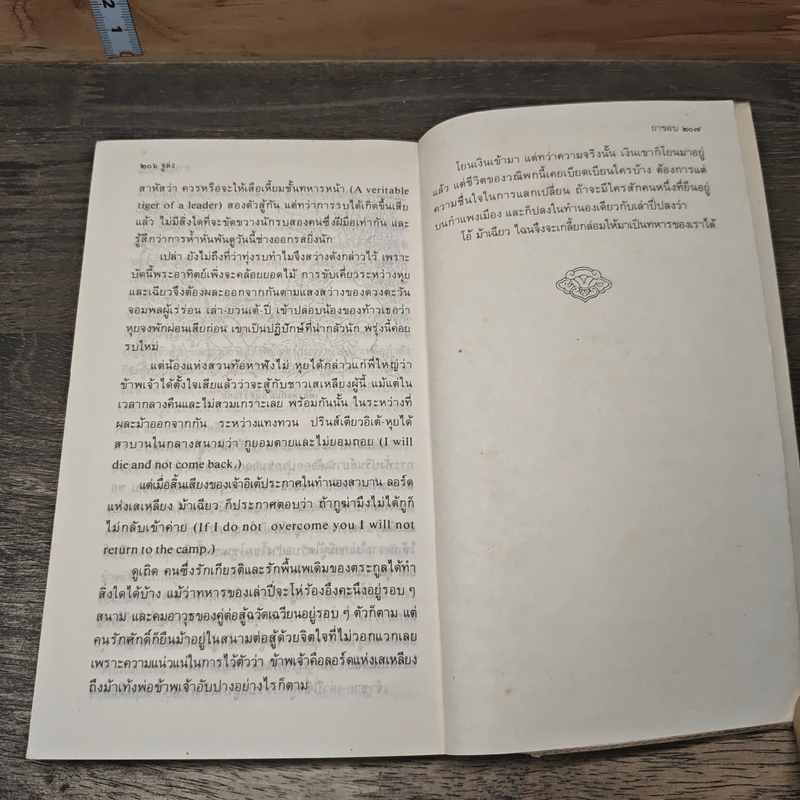 2
1
๒๐๖ จูล่ง
สาหัสว่า ควรหรือจะให้เสือเหี้ยมชั้นทหารหน้า (A veritable
tiger of a leader) สองตัวสู้กัน แต่ทว่าการรบได้เกิดขึ้นเสีย
แล้ว ไม่มีสิ่งใดที่จะขัดขวางนักรบสองคนซึ่งฝีมือเท่ากัน และ
รู้สึกว่าการห้ำหั่นพันตูวันนี้ช่างออกรสยิ่งนัก
เปล่า ยังไม่ถึงที่ว่าทุ่งรบทำไมจึงสว่างดังกล่าวไว้ เพราะ
บัดนี้พระอาทิตย์เพิ่งจะคล้อยยอดไม้ การขับเคี่ยวระหว่างหุย
และเฉียวจึงต้องผละออกจากกันตามแสงสว่างของดวงตะวัน
จอมพลผู้เร่ร่อน เล่า-ยวนเต้-ปี่ เข้าปลอบน้องของท้าวเธอว่า
หุยจงพักผ่อนเสียก่อน เขาเป็นปฏิปักษ์ที่น่ากลัวนัก พรุ่งนี้ค่อย
รบใหม่
แต่น้องแห่งสวนท้อหาฟังไม่ หุยได้กล่าวแก่พี่ใหญ่ว่า
ข้าพเจ้าได้ตั้งใจเสียแล้วว่าจะสู้กับชาวเสเหลียงผู้นี้ แม้แต่ใน
เวลากลางคืนและไม่สวมเกราะเลย พร้อมกันนั้น ในระหว่างที่
ผละม้าออกจากกัน ระหว่างแทงทวน ปรินส์เตียวอิเต้-หุยได้
สาบานในกลางสนามว่า กูยอมตายและไม่ยอมถอย (I will
die and not come back.)
แต่เมื่อสิ้นเสียงของเจ้าอิเต้ประกาศในทำนองสาบาน ลอร์ด
แห่งเสเหลียง ม้าเฉียว ก็ประกาศตอบว่า ถ้ากูฆ่ามึงไม่ได้กูก็
ไม่กลับเข้าค่าย (If I do not overcome you I will not
return to the camp.)
ดูเถิด คนซึ่งรักเกียรติและรักพื้นเพเดิมของตระกูลได้ทำ
สิ่งใดได้บ้าง แม้ว่าทหารของเล่าปี่จะโห่ร้องอึงคะนึงอยู่รอบ ๆ
สนาม และคมอาวุธของคู่ต่อสู้ฉวัดเฉวียนอยู่รอบ ๆ ตัวก็ตาม แต่
คนรักศักดิ์ก็ยืนม้าอยู่ในสนามต่อสู้ด้วยจิตใจที่ไม่วอกแวกเลย
เพราะความแน่วแน่ในการไว้ตัวว่า ข้าพเจ้าคือลอร์ดแห่งเสเหลียง
ถึงม้าเท้งพ่อข้าพเจ้าอับปางอย่างไรก็ตาม
ยาขอบ ๒๐๗
โยนเงินเข้ามา แต่ทว่าความจริงนั้น เงินเขาก็โยนมาอยู่
แล้ว แต่ชีวิตของวณิพกนี้เคยเบียดเบียนใครบ้าง ต้องการแต่
ความชื่นใจในการแลกเปลี่ยน ถ้าจะมีใครสักคนหนึ่งที่ยืนอยู่
บนกำแพงเมือง และก็ปลงในทำนองเดียวกับเล่าปี่ปลงว่า
โอ้ ม้าเฉียว ไฉนจึงจะเกลี้ยกล่อมให้มาเป็นทหารของเราได้